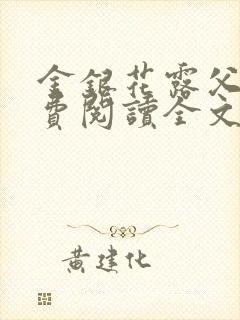 金銀花露父
費閱讀全文
黃建化